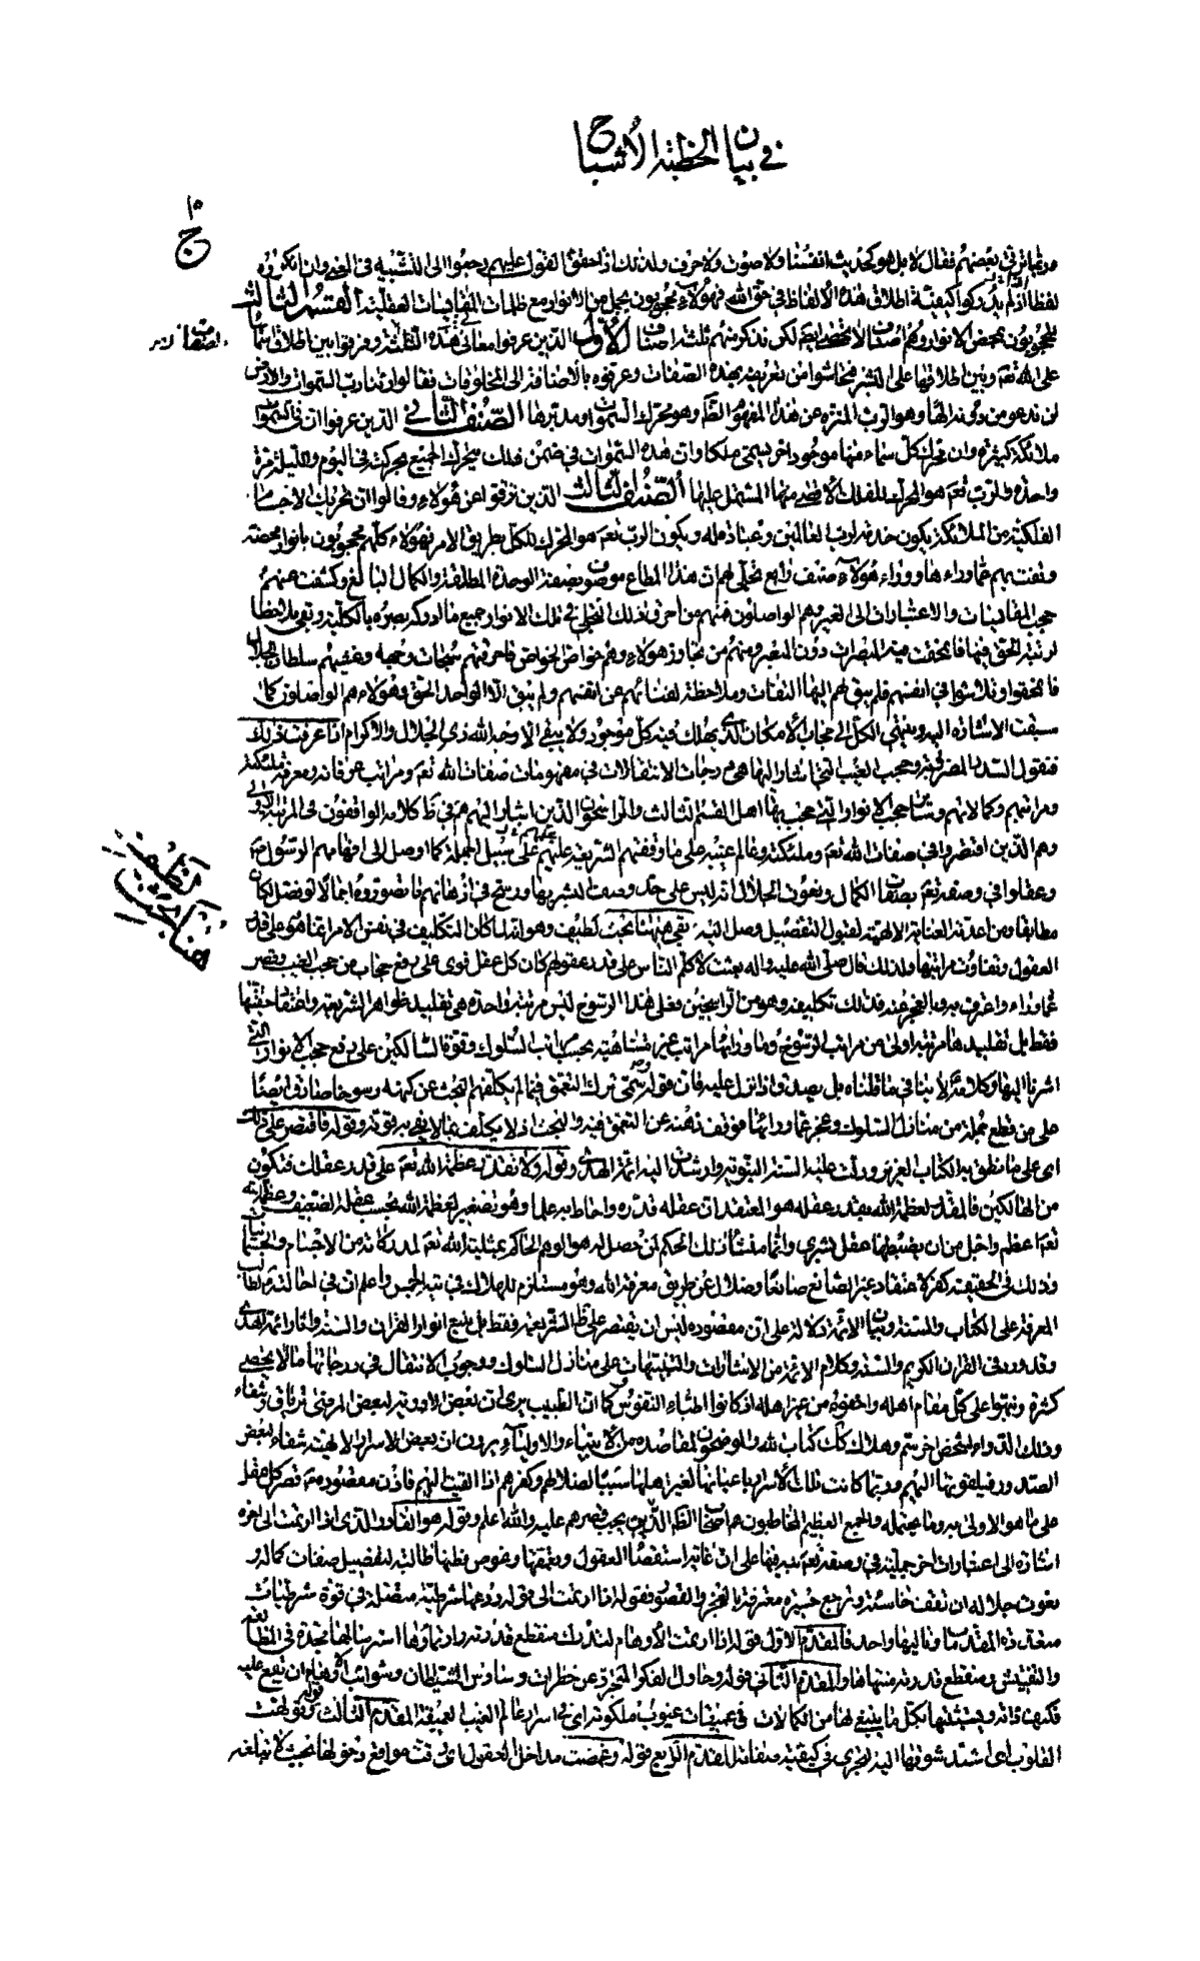 في بيان الخطبة الأشباح
١٥
ج
وربما ترقى بعضهم فقال لا بل هو كحديث أنفسنا ولا صوت ولا حرف ولذلك إذا حقق القول عليهم رجعوا إلى التشبيه في المعنى وإن أنكروه
لفظا إذ لم يدركوا كيفية إطلاق هذه الألفاظ في حق الله فهؤلاء محجوبون بجمل من الأنوار مع ظلمات المقايسات العقلية القسم الثالث
المحجوبون بمحض الأنوار وهم أصناف لا تحصى أيضا لكن نذكر منهم ثلثة أصناف الأول الذين عرفوا معاني هذه الصفات وفرقوا بين إطلاقها
على الله تعم وبين إطلاقها على البشر فتحاشوا من تعريفه بهذه الصفات وعرفوه بالإضافة إلى المخلوقات فقالوا ربنا رب السموات والأرض
لن ندعو من دونه إلها وهو الرب المنزه عن هذا المفهوم الظاهر وهو محرك السموات ومدبرها الصنف الثاني الذين عرفوا أن في السموات
ملائكة كثيرة وأن محرك كل سماء منها موجود آخر يسمى ملكا وأن هذه السموات في ضمن فلك يتحرك الجميع بحركته في اليوم والليلة مرة
واحدة والرب تعم هو المحرك للفلك الأقصى منها المشتمل عليها الصنف الثالث الذين ترقوا عن هؤلاء وقالوا إن تحريك الأجسام
الفلكية من الملائكة يكون خدمة لرب العالمين وعبادة له ويكون الرب تعم هو المحرك للكل بطريق الأمر فهؤلاء كلهم محجوبون بأنوار محضة
وقفت بهم عما وراءها ووراء هؤلاء صنف رابع تجلى لهم أن هذا المطاع موصوف بصفة الوحدة المطلقة والكمال البالغ وكشفت عنهم
حجب المقايسات والاعتبارات إلى الغير وهم الواصلون فمنهم من أحرق ذلك التجلي في تلك الأنوار جميع ما أدركه بصره بالكلية وبقي ملاحظا
لرتبة الحق فيها فانمحقت فيه المبصرات دون المبصر ومنهم من تجاوز هؤلاء وهم خواص الخواص فأحرقتهم سبحات وجهه وغشيهم سلطان الجلال
فانمحقوا وتلاشوا في أنفسهم فلم يبق لهم إليها التفات وملاحظة لفنائهم عن أنفسهم ولم يبق إلا الواحد الحق وهؤلاء هم الواصلون كما
سبقت الإشارة إليه وينتهي الكل إلى حجاب الإمكان الذي يهلك فيه كل موجود ولا يبقى إلا وجه الله ذي الجلال والإكرام إذا عرفت ذلك
فنقول السدد المضروبة وحجب الغيب التي أشار إليها هي درجات الانتقالات في مفهومات صفات الله تعم ومراتب عرفانه ومعرفة ملئكته
ومراتبهم وكمالاتهم وسائر حجب الأنوار التي حجب بها أهل القسم الثالث والراسخون الذين أشار إليهم هم في ظاهر كلامه الواقفون في المرتبة الأولى
وهم الذين اقتصروا في صفات الله تعم وملئكته وعالم غيبه على ما وقفتهم الشريعة عليهم على سبيل الجملة كما أوصل إلى أفهامهم الرسول ص
وعقلوا في وصفه تعم بصفات الكمال ونعوت الجلال أنه ليس على حد وصف البشر بها ورسخ في أذهانهم ما تصوروه إجمالا لو فصل لكان
مطابقا ومن أعدته العناية الإلهية لقبول التفصيل وصل إليه بقي ههنا بحث لطيف وهو أنه لما كان التكليف في نفس الأمر إنما هو على قدر
العقول وتفاوت مراتبها ولذلك قال صلى الله عليه وآله بعثت لأكلم الناس على قدر عقولهم كان كل عقل قوي على رفع حجاب من حجب الغيب وقصر
عما وراءه واعترف به وبالعجز عنه فذلك تكليفه وهو من الراسخين فعلى هذا الرسوخ ليس مرتبة واحدة هي تقليد ظواهر الشريعة واعتقاد حقيقتها
فقط بل تقليدها مرتبة أولى من مراتب الرسوخ وما وراءها مراتب غير متناهية بحسب مراتب السلوك وقوة السالكين على رفع حجب الأنوار التي
أشرنا إليها وكلامه لا ينافي ما قلناه بل يصدق إذا نزل عليه فإن قوله وسمى تركهم التعمق فيما لم يكلفهم البحث عن كنهه رسوخا صادق أيضا
على من قطع جملة من منازل السلوك وعجز عما وراءها فوقف ذهنه عن التعمق فيه والبحث إذ لا يكلف بما لا يفي به قوته وقوله فاقتصر على ذلك
أي على ما نطق به الكتاب العزيز ودلت عليه السنة النبوية وأرشدك إليه أئمة الهدى وقوله ولا تقدر عظمة الله تعم على قدر عقلك فتكون
من الهالكين فالمقدر لعظمة الله بقدر عقله هو المعتقد أن عقله قدره وأحاط به علما وهو تصغير لعظمة الله بحسب عقله الضعيف وعظمة
تعم أعظم وأجل من أن يضبطها عقل بشري وإنما منشأ ذلك الحكم لمن حصل له هو الوهم الحاكم بمثلية الله تعم لمدركاته من الأجسام والجسمانيات
وذلك في الحقيقة كفر لاعتقاد غير الصانع صانعا وضلال عن طريق معرفة الله وهو مستلزم للهلاك في تيه الجهل واعلم أن في إحالته طالب
المعرفة على الكتاب والسنة وبيان الأئمة دلالة على أن مقصوده ليس أن يقتصر على ظاهر الشريعة فقط بل يتبع أنوار القرآن والسنة وآثار أئمة الهدى
وقد ورد في القرآن الكريم والسنة وكلام الأئمة من الإشارات والتنبيهات على منازل السلوك ووجوب الانتقال في درجاتها ما لا يحصى
كثرة ونبهوا على كل مقام أهله وأخفوه من غير أهله إذ كانوا أطباء النفوس وكما أن الطبيب يرى أن بعض الأدوية لبعض المرضى ترياق وشفاء
وذلك الدواء لشخص آخر سم وهلاك كذلك كتاب الله والموضحون لمقاصده من الأنبياء والأولياء يرون أن بعض الأسرار الإلهية شفاء لبعض
الصدور فيلقونها إليهم وربما كانت تلك الأسرار بأعيانها لغير أهلها سببا لضلالهم وكفرهم إذا القيت إليهم فإذن مقصوده ع قصر كل عقل
على ما هو الأولى به وما يحتمله والجمع العظيم المخاطبون هم أصحاب الظاهر الذين يجب قصرهم عليه والله أعلم وقوله هو القادر الذي إذا ارتمت إلى آخره
إشارة إلى اعتبارات أخر جميلة في وصفه تعم نبه فيها على أن غاية استقصاء العقول وتعمقها وغوص فطنها طالبة لتفصيل صفات كماله و
نعوت جلاله أن تقف خاسئة وترجع حسيرة معترفة بالعجز والقصور فقوله إذا ارتمت إلى قوله ردعها شرطية متصلة في قوة شرطيات
متعددة المقدمات وتاليها واحد فالمقدم الأول قوله إذا ارتمت الأوهام لتدرك منقطع قدرته
والتفتيش ومنقطع قدرته منتهاها والمقدم الثاني قوله وحاول الفكر المبرأ من خطرات وساوس الشيطان وشوائب الأوهام أن تقع عليه
فيكتنه ذاته ويستثبتها بكل ما ينبغي لها من الكمالات في عميقات غيوب ملكوته أي في أسرار عالم الغيب العميقة المقدم الثالث قوله وتولهت
القلوب أي اشتد شوقها إليه لتجري في كيفية صفاته المقدم الرابع قوله وغمضت مداخل العقول أي دقت مواقع دخولها بحيث لا تبلغه